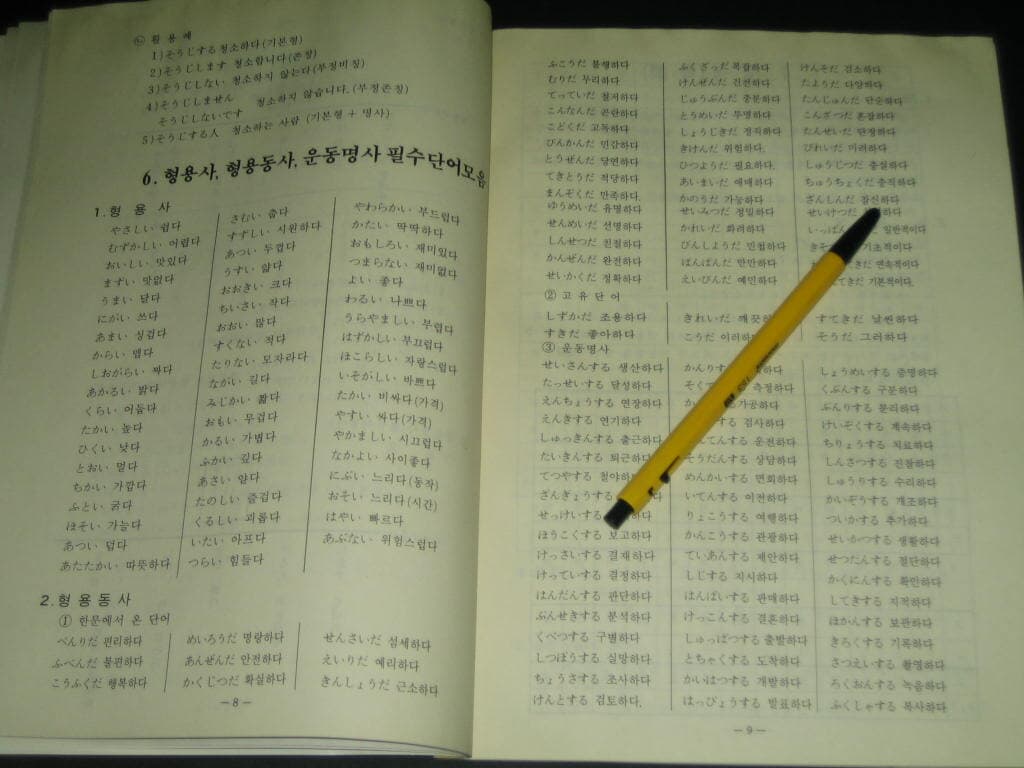 ㉯ 활용예
1) そうじする 청소하다(기본형)
2) そうじします 청소합니다(존칭)
3) そうじしない 청소하지 않는다(부정비칭)
4) そうじしません 청소하지 않습니다.(부정존칭)
そうじしないです
5) そうじする人 청소하는 사람 (기본형 + 명사)
6. 형용사, 형용동사, 운동명사 필수단어모음
1. 형용사
やさしい 쉽다
むずかしい 어렵다
おいしい 맛있다
まずい 맛없다
うまい 달다
にがい 쓰다
あまい 싱겁다
からい 맵다
しおがらい 짜다
あかるい 밝다
くらい 어둡다
たかい 높다
ひくい 낮다
とおい 멀다
ちかい 가깝다
ふとい 굵다
ほそい 가늘다
あつい 덥다
あたたかい 따뜻하다
さむい 춥다
すずしい 시원하다
あつい 두껍다
うすい 얇다
おおきい 크다
ちいさい 작다
おおい 많다
すくない 적다
たりない 모자라다
ながい 길다
みじかい 짧다
おもい 무겁다
かるい 가볍다
ふかい 깊다
あさい 얕다
たのしい 즐겁다
くるしい 괴롭다
いたい 아프다
つらい 힘들다
やわらかい 부드럽다
かたい 딱딱하다
おもしろい 재미있다
つまらない 재미없다
よい 좋다
わるい 나쁘다
うらやましい 부럽다
はずかしい 부끄럽다
ほこらしい 자랑스럽다
いそがしい 바쁘다
たかい 비싸다(가격)
やすい 싸다(가격)
やかましい 시끄럽다
なかよい 사이좋다
にぶい 느리다(동작)
おそい 느리다(시간)
はやい 빠르다
あぶない 위험스럽다
2. 형용동사
① 한문에서 온 단어
べんりだ 편리하다
ふべんだ 불편하다
こうふくだ 행복하다
めいろうだ 명랑하다
あんぜんだ 안전하다
かくじつだ 확실하다
せんさいだ 섬세하다
えいりだ 예리하다
きんしょうだ 근소하다
－8－
ふこうだ 불행하다
むりだ 무리하다
てっていだ 철저하다
こんなんだ 곤란하다
こどくだ 고독하다
びんかんだ 민감하다
とうぜんだ 당연하다
てきとうだ 적당하다
まんぞくだ 만족하다.
ゆうめいだ 유명하다
せんめいだ 선명하다
しんせつだ 친절하다
かんぜんだ 완전하다
せいかくだ 정확하다
ふくざつだ 복잡하다
けんぜんだ 건전하다
じゅうぶんだ 충분하다
とうめいだ 투명하다
しょうじきだ 정직하다
きけんだ 위험하다.
ひつようだ 필요하다.
あいまいだ 애매하다
かのうだ 가능하다
せいみつだ 정밀하다
かれいだ 화려하다
びんしょうだ 민첩하다
ばんぱんだ 만만하다
えいびんだ 예민하다
けんそだ 검소하다
たようだ 다양하다
たんじゅんだ 단순하다
こんざつだ 혼잡하다
たんせいだ 단정하다
びれいだ 미려하다
しゅうじつだ 충실하다
ちゅうちょくだ 충직하다
ざんしんだ 참신하다
せいけつだ
일반적이다
기초적이다
연속적이다
기본적이다.
② 고유단어
しずかだ 조용하다
すきだ 좋아하다
きれいだ
こうだ 이러하다
すてきだ 날씬하다
そうだ 그러하다
③ 운동명사
せいさんする 생산하다
たっせいする 달성하다
えんちょうする 연장하다
えんきする 연기하다
しゅっきんする 출근하다
たいきんする 퇴근하다
てつやする 철야하다
ざんぎょうする
せっけいする
ほうこくする 보고하다
けっさいする 결재하다
けっていする 결정하다
はんだんする 판단하다
ぶんせきする 분석하다
くべつする 구별하다
しつぼうする 실망하다
ちょうさする 조사하다
けんとする 검토하다.
かんり
측정하다
가공하다
검사하다
운전하다
そうだんする 상담하다
めんかいする 면회하다
いてんする 이전하다
りょこうする 여행하다
かんこうする 관광하다
ていあんする 제안하다
しじする 지시하다
はんばいする 판매하다
けっこんする 결혼하다
しゅっぱつする 출발하다
とちゃくする 도착하다
かいはつする 개발하다
はっぴょうする 발표하다
しょうめいする 증명하다
くぶんする 구분하다
ぶんりする 분리하다
けいぞくする 계속하다
ちりょうする 치료하다
しんさつする 진찰하다
しゅうりする 수리하다
かいぞうする 개조하다
ついかする 추가하다
せいかつする 생활하다
せつだんする 절단하다
かくにんする 확인하다
してきする 지적하다
ほかんする 보관하다
きろくする 기록하다
さつえいする 촬영하다
ろくおんする 녹음하다
ふくしゃする 복사하다
－9－